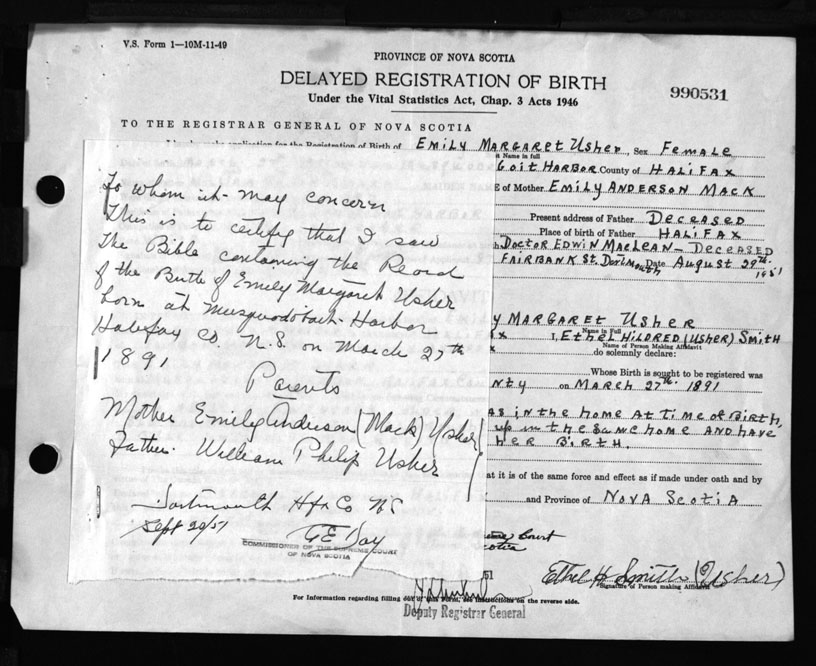 V.S. Form 1—10M-11-49
PROVINCE OF NOVA SCOTIA
DELAYED REGISTRATION OF BIRTH
990531
Under the Vital Statistics Act, Chap. 3 Acts 1946
TO THE REGISTRAR GENERAL OF NOVA SCOTIA
Registration of Birth of EMILY MARGARET USHER, Sex FEMALE
Name in full
GOIT HARBOR County of HALIFAX
of Mother EMILY ANDERSON MACK
Present address of Father DECEASED
Place of birth of Father HALIFAX
DOCTOR EDWIN MACLEAN - DECEASED
FAIRBANK ST. DARTMOUTH Date AUGUST 29th 1951
Y MARGARET USHER
Name in Full
I, ETHEL HILDRED (USHER) SMITH
Name of Person Making Affidavit
do solemnly declare:
Whose Birth is sought to be registered was
NTY on MARCH 27th 1891
AS IN THE HOME AT TIME OF BIRTH,
UP IN THE SAME HOME AND HAVE
HER BIRTH.
at it is of the same force and effect as if made under oath and by
and Province of NOVA SCOTIA
Court
Scotia
51
Ethel H Smith (Usher)
Signature of Person making Affidavit
For Information regarding filling out of this Form, see instructions on the reverse side.
Deputy Registrar General
To whom it may concern
This is to certify that I saw
The Bible containing the Record
of the Birth of Emily Margaret Usher
born at Musquodoboit Harbor
Halifax Co. N.S. on March 27th
1891
Parents
Mother Emily Anderson (Mack) Usher
Father. William Philip Usher
Dartmouth Hfx Co NS
Sept 20/51
G E Day
COMMISSIONER OF THE SUPREME COURT
OF NOVA SCOTIA